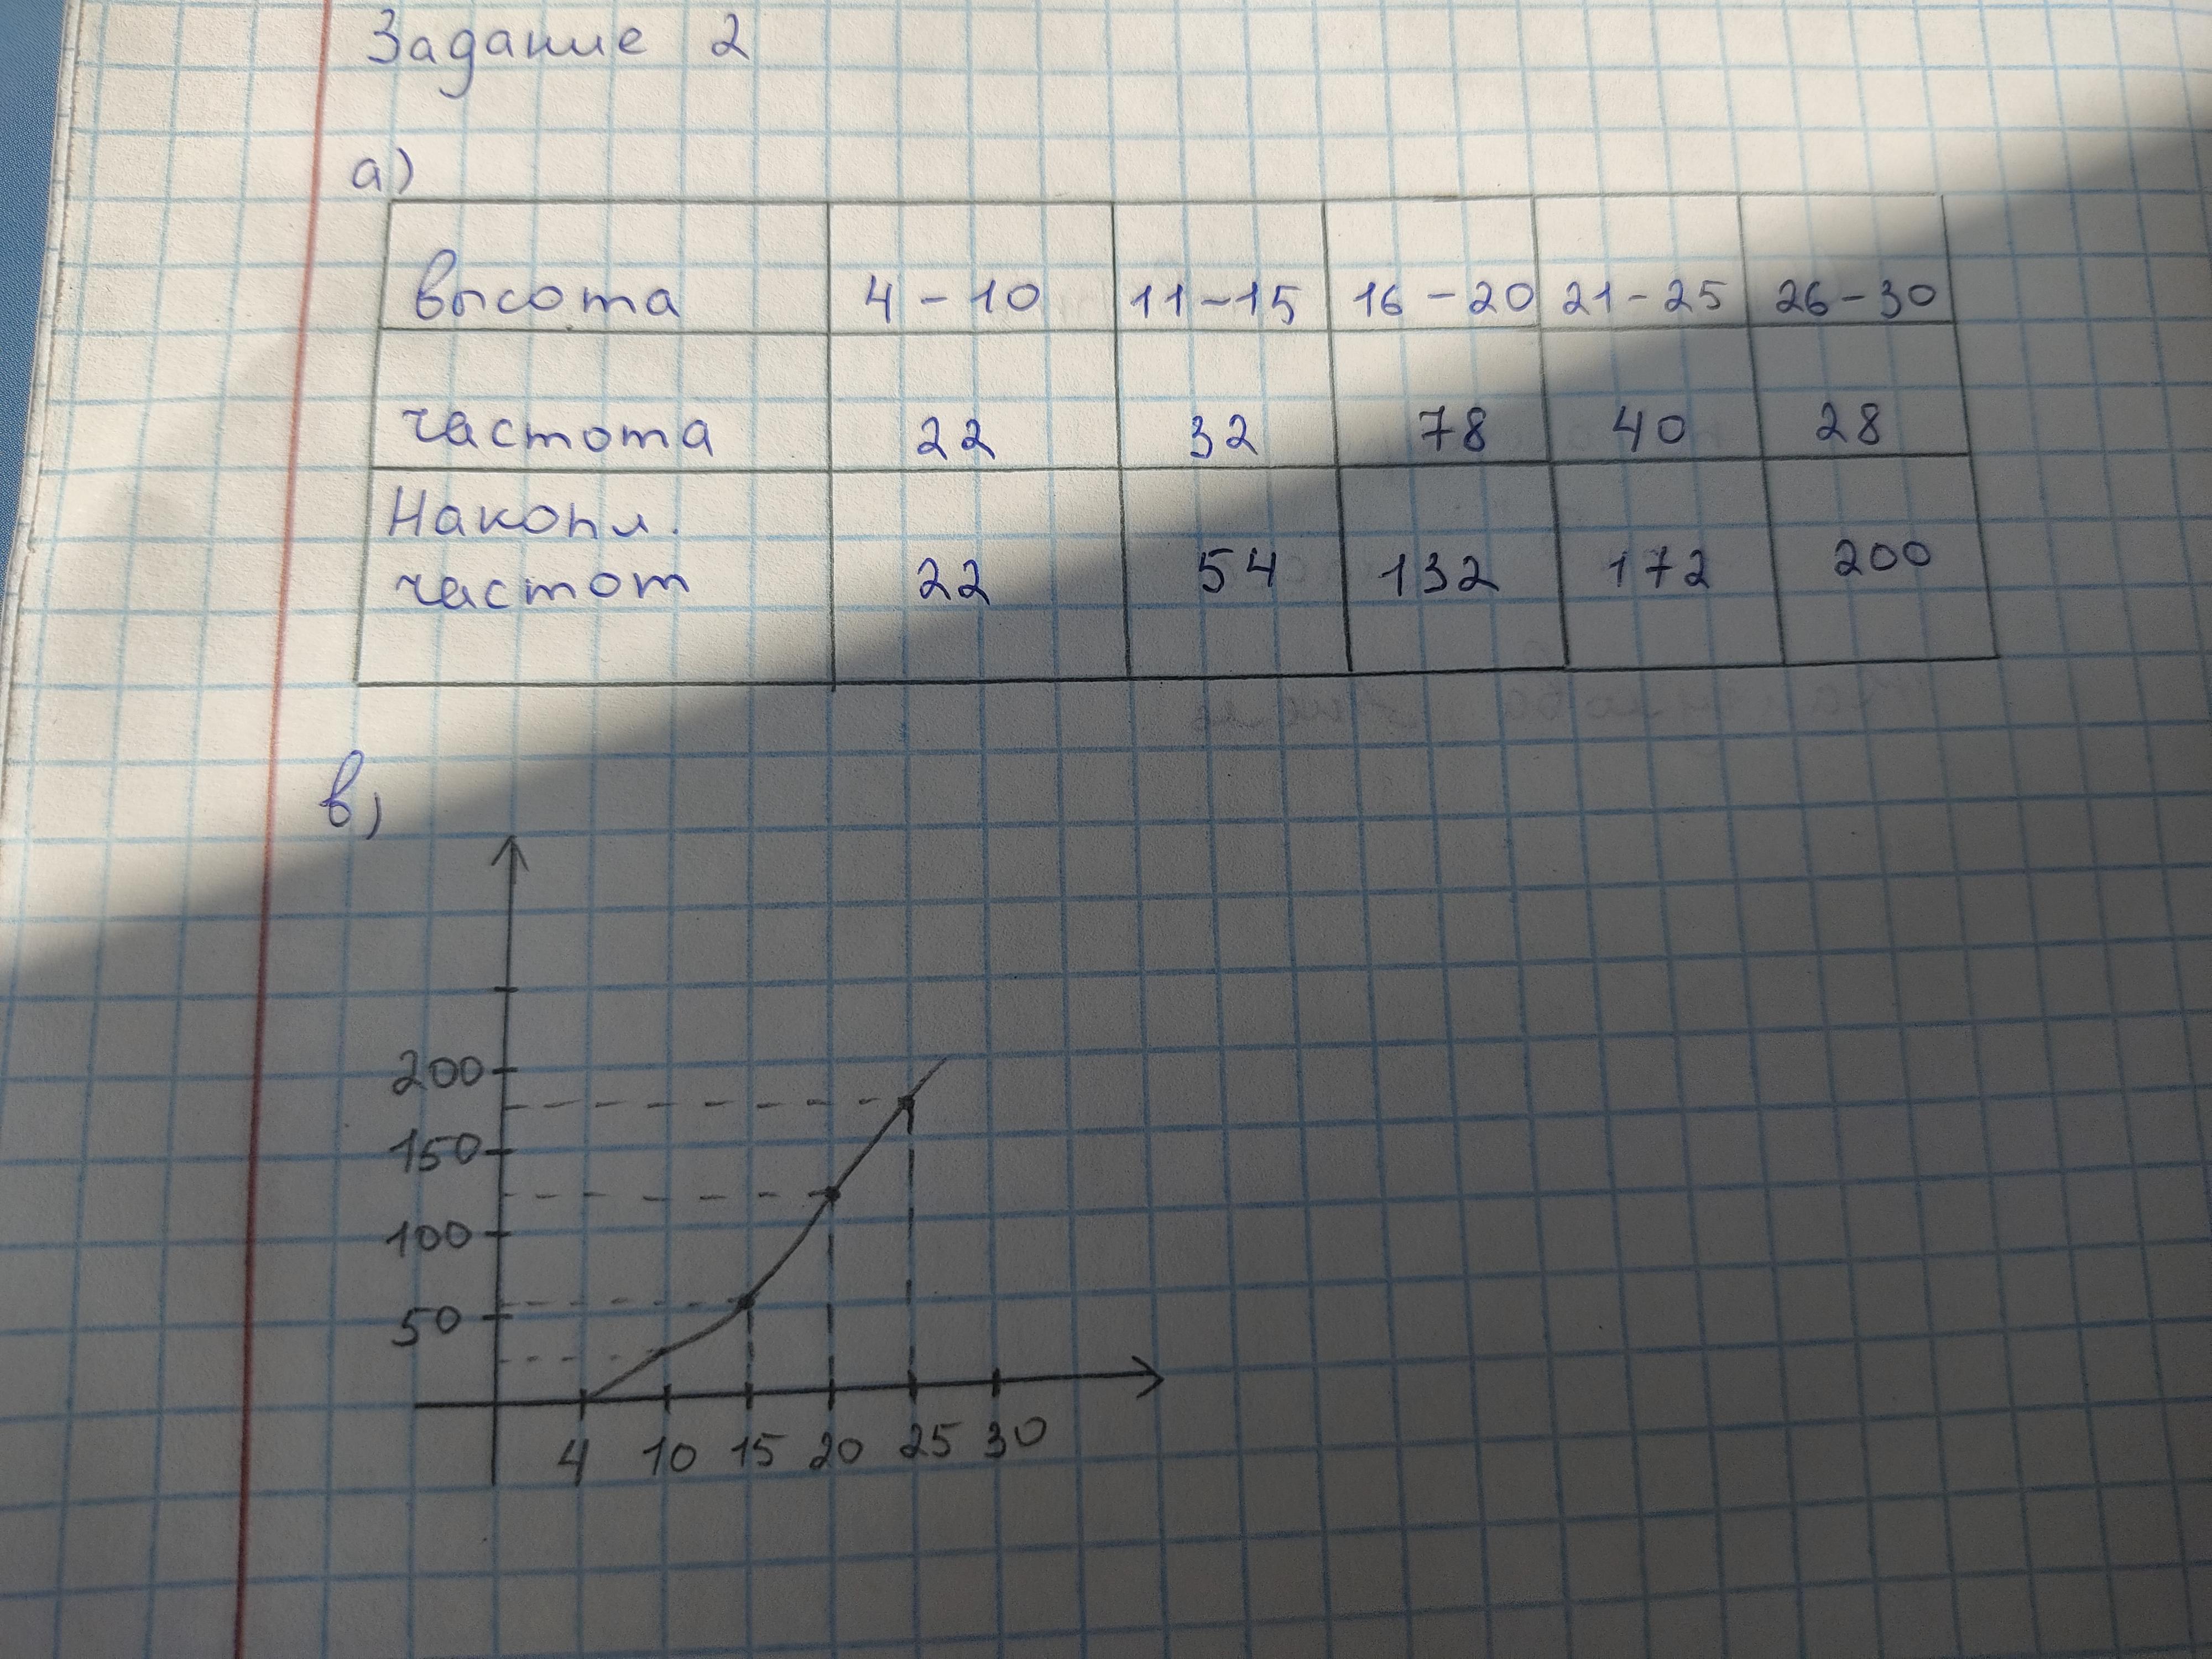 Задание 2
а)
высота 4-10 11-15 16-20 21-25 26-30
частота 22 32 78 40 28
Накопл.
частот 22 54 132 172 200
в)
200
150
100
50
4 10 15 20 25 30